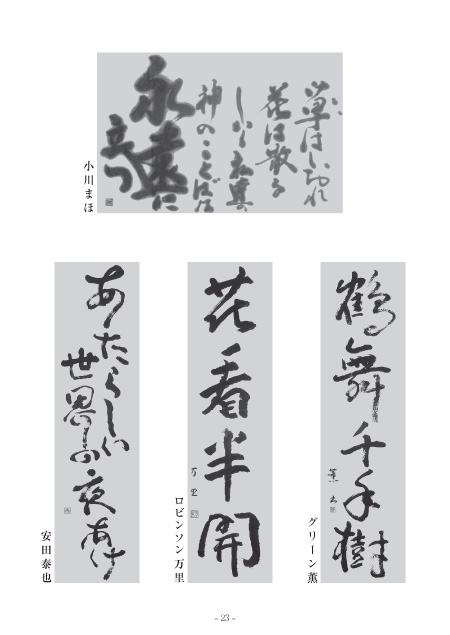 草はしおれ
花は散る
しかし
神のことばは
永遠に
立つ
小川まほ
鶴舞千年樹
薫
グリーン薫
花看半開
万里
ロビンソン万里
あたらしい
世界の
夜あけ
安田泰也
- 23 -